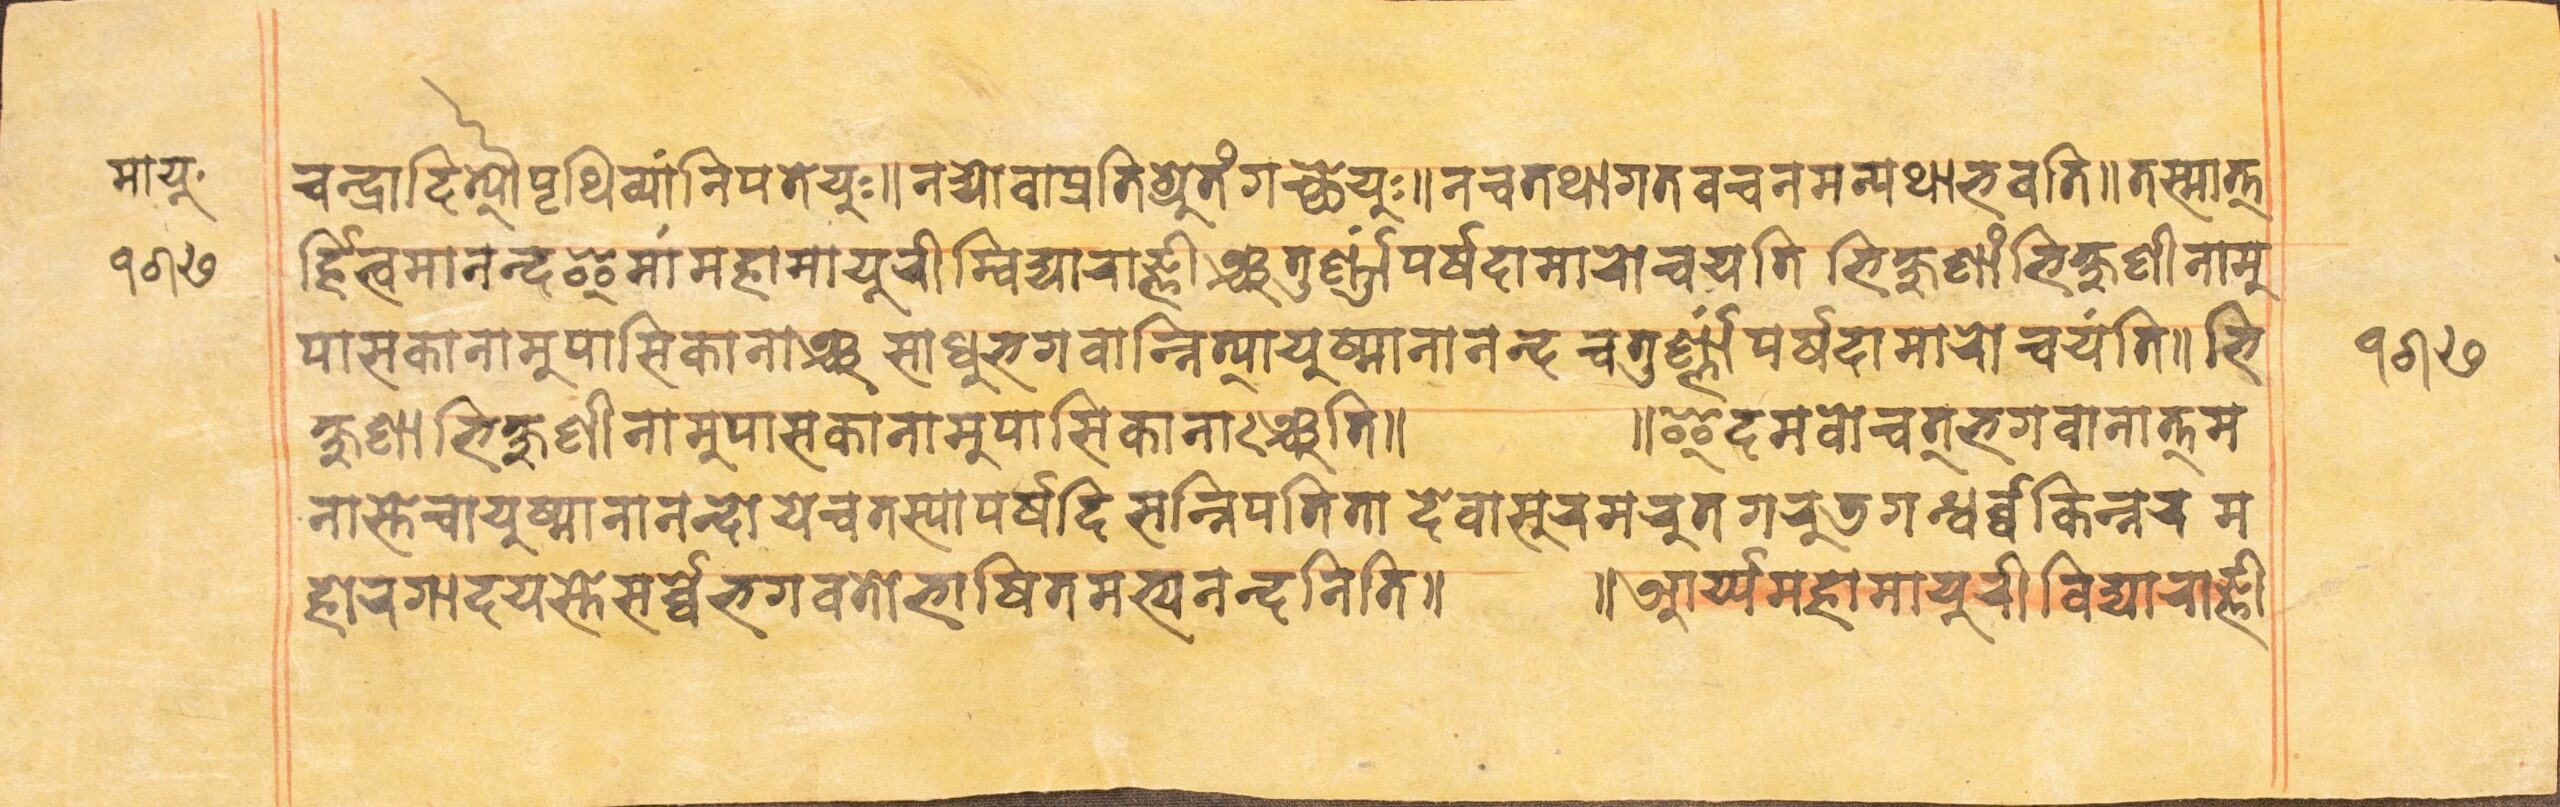 मायु
चन्द्रादित्यौपृथिव्यांनिपतेयुः॥नद्योवाप्रतिश्रुतंगच्छेयुः॥नचतथागतवचनमन्यथाभवति॥तस्मात्त
१७७
र्हित्वमानन्दइमांमहामायुरीम्विद्याराज्ञीञ्चतुर्ण्णांपर्षदामारोचयति भिक्षुणांभिक्षुणीनामु
पासकानामुपासिकानाञ्च साधुभगवान्नित्यायुष्मानानन्द चतुर्ण्णांपर्षदामारोचयंति॥भि
१७७
क्षुणाभिक्षुणीनामुपासकानामुपासिकानाञ्चति॥ ॥इदमवोचत्भगवानात्तम
नास्तेचायुष्मानानन्दोयेचतस्यापर्षदिसन्निपतिता देवासुरमरुतगरुडगन्धर्व्वकिन्नर म
होरगादयस्तेसर्व्वेभगवतोभाषितमभ्यनन्दनिति॥ ॥आर्य्यमहामायुरीविद्याराज्ञी